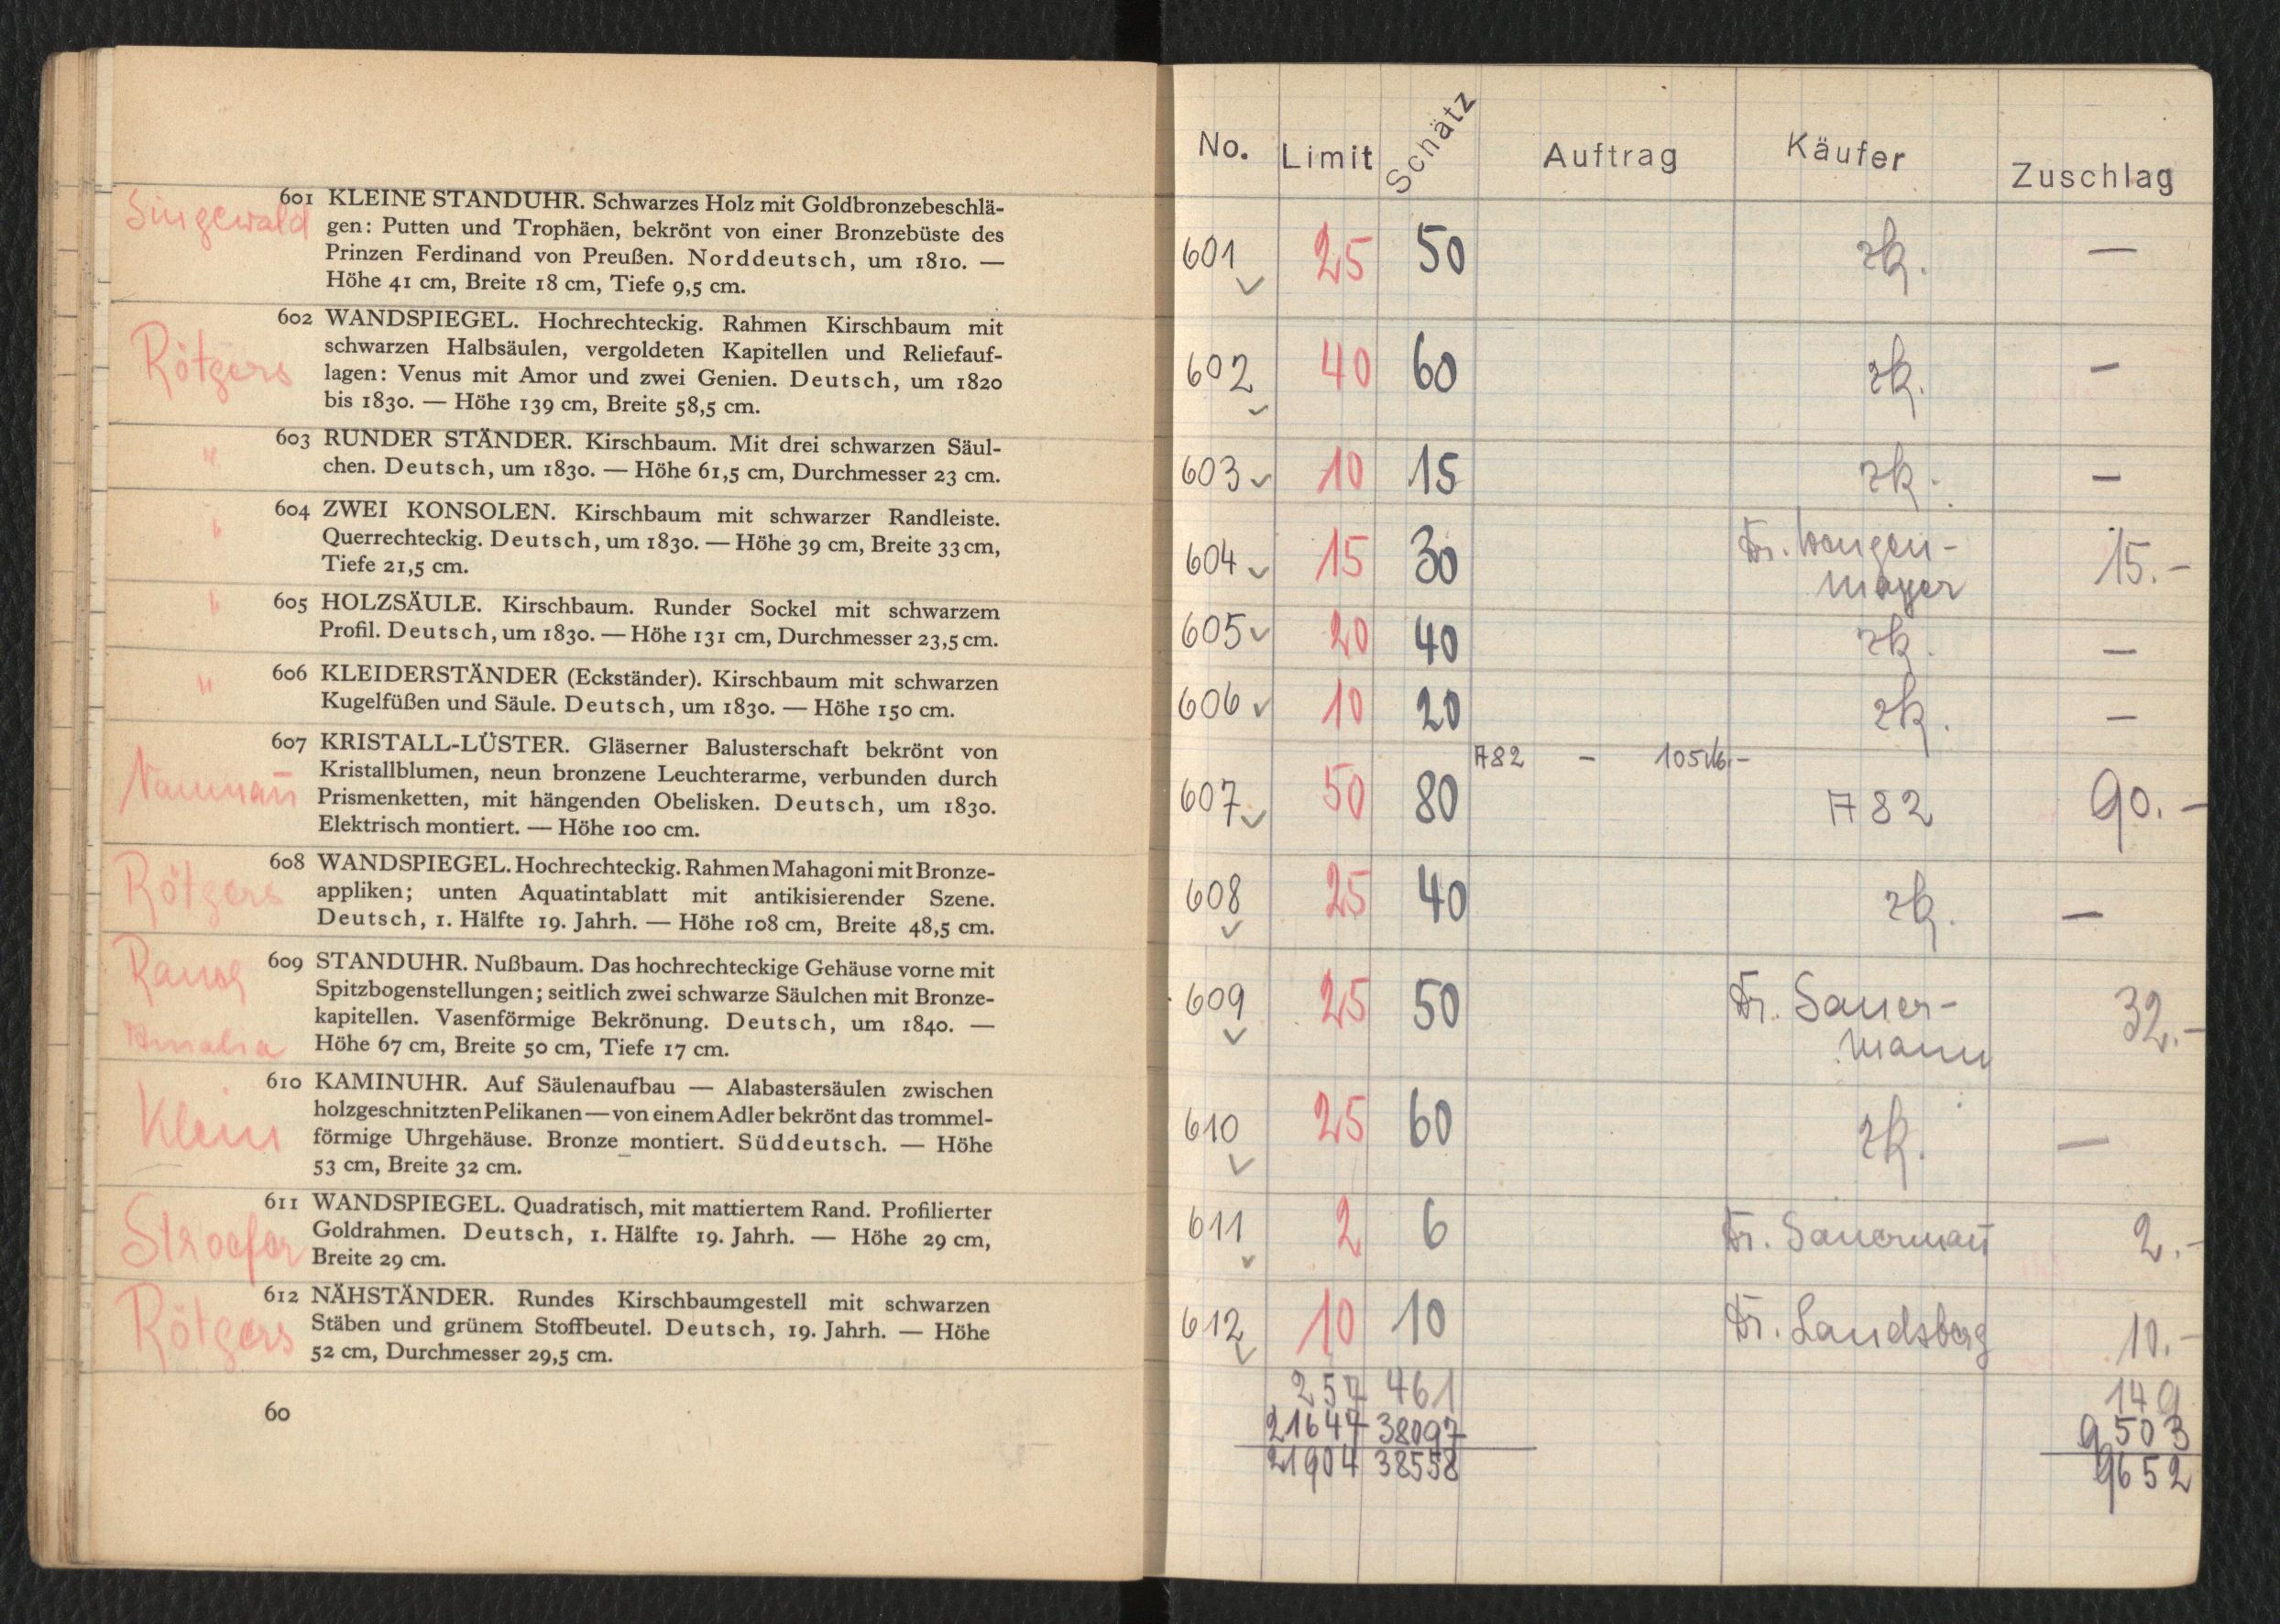 Singewald
601 KLEINE STANDUHR. Schwarzes Holz mit Goldbronzebeschlä-
gen: Putten und Trophäen, bekrönt von einer Bronzebüste des
Prinzen Ferdinand von Preußen. Norddeutsch, um 1810. —
Höhe 41 cm, Breite 18 cm, Tiefe 9,5 cm.
Rötgers
602 WANDSPIEGEL. Hochrechteckig. Rahmen Kirschbaum mit
schwarzen Halbsäulen, vergoldeten Kapitellen und Reliefauf-
lagen: Venus mit Amor und zwei Genien. Deutsch, um 1820
bis 1830. — Höhe 139 cm, Breite 58,5 cm.
" 603 RUNDER STÄNDER. Kirschbaum. Mit drei schwarzen Säul-
chen. Deutsch, um 1830. — Höhe 61,5 cm, Durchmesser 23 cm.
" 604 ZWEI KONSOLEN. Kirschbaum mit schwarzer Randleiste.
Querrechteckig. Deutsch, um 1830. — Höhe 39 cm, Breite 33 cm,
Tiefe 21,5 cm.
" 605 HOLZSÄULE. Kirschbaum. Runder Sockel mit schwarzem
Profil. Deutsch, um 1830. — Höhe 131 cm, Durchmesser 23,5 cm.
" 606 KLEIDERSTÄNDER (Eckständer). Kirschbaum mit schwarzen
Kugelfüßen und Säule. Deutsch, um 1830. — Höhe 150 cm.
Naumañ
607 KRISTALL-LÜSTER. Gläserner Balusterschaft bekrönt von
Kristallblumen, neun bronzene Leuchterarme, verbunden durch
Prismenketten, mit hängenden Obelisken. Deutsch, um 1830.
Elektrisch montiert. — Höhe 100 cm.
Rötgers
608 WANDSPIEGEL. Hochrechteckig. Rahmen Mahagoni mit Bronze-
appliken; unten Aquatintablatt mit antikisierender Szene.
Deutsch, 1. Hälfte 19. Jahrh. — Höhe 108 cm, Breite 48,5 cm.
609 STANDUHR. Nußbaum. Das hochrechteckige Gehäuse vorne mit
Spitzbogenstellungen; seitlich zwei schwarze Säulchen mit Bronze-
kapitellen. Vasenförmige Bekrönung. Deutsch, um 1840. —
Höhe 67 cm, Breite 50 cm, Tiefe 17 cm.
Klein
610 KAMINUHR. Auf Säulenaufbau — Alabastersäulen zwischen
holzgeschnitzten Pelikanen — von einem Adler bekrönt das trommel-
förmige Uhrgehäuse. Bronze montiert. Süddeutsch. — Höhe
53 cm, Breite 32 cm.
Stroefer
611 WANDSPIEGEL. Quadratisch, mit mattiertem Rand. Profilierter
Goldrahmen. Deutsch, 1. Hälfte 19. Jahrh. — Höhe 29 cm,
Breite 29 cm.
Rötgers
612 NÄHSTÄNDER. Rundes Kirschbaumgestell mit schwarzen
Stäben und grünem Stoffbeutel. Deutsch, 19. Jahrh. — Höhe
52 cm, Durchmesser 29,5 cm.
60
No. Limit Schätz Auftrag Käufer Zuschlag
601 25 50 zk. —
602 40 60 zk. —
603 10 15 zk. —
604 15 30 Dr. Wengen-
mayer 15.-
605 20 40 zk. —
606 10 20 zk. —
A82 - 105 M.-
607 50 80 A 82 90.-
608 25 40 zk. —
609 25 50 Dr. Sauer-
mann 32.-
610 25 60 zk. —
611 2 6 Dr. Sauermañ 2.-
612 10 10 Dr. Landsberg 10.-
257 461 149
21647 38097 9503
21904 38558 9652